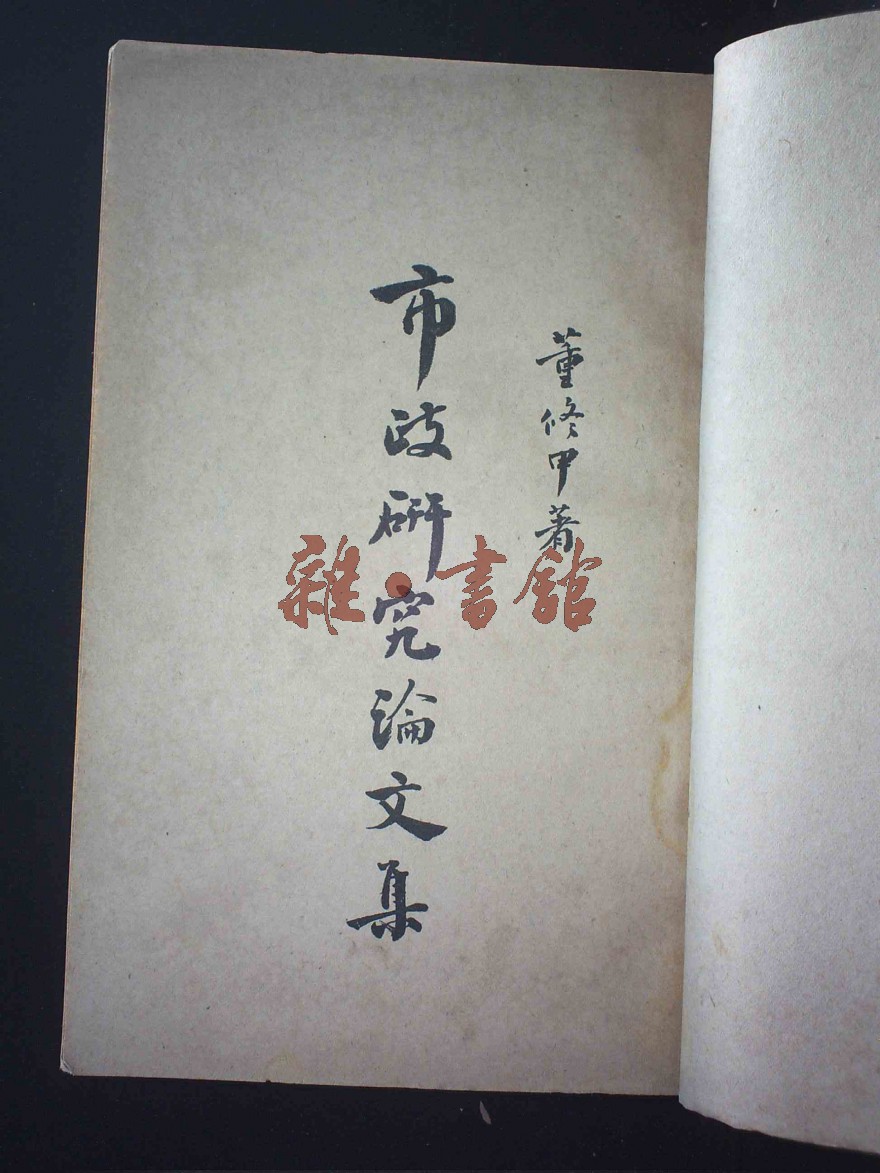 董修甲著
市政研究論文集
雜·書館